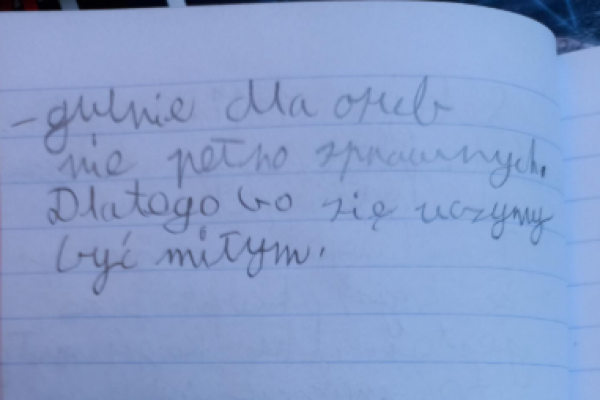 - gulnie dla osub
nie pełno sprawnych.
Dlatego bo się uczymy
być miłym.